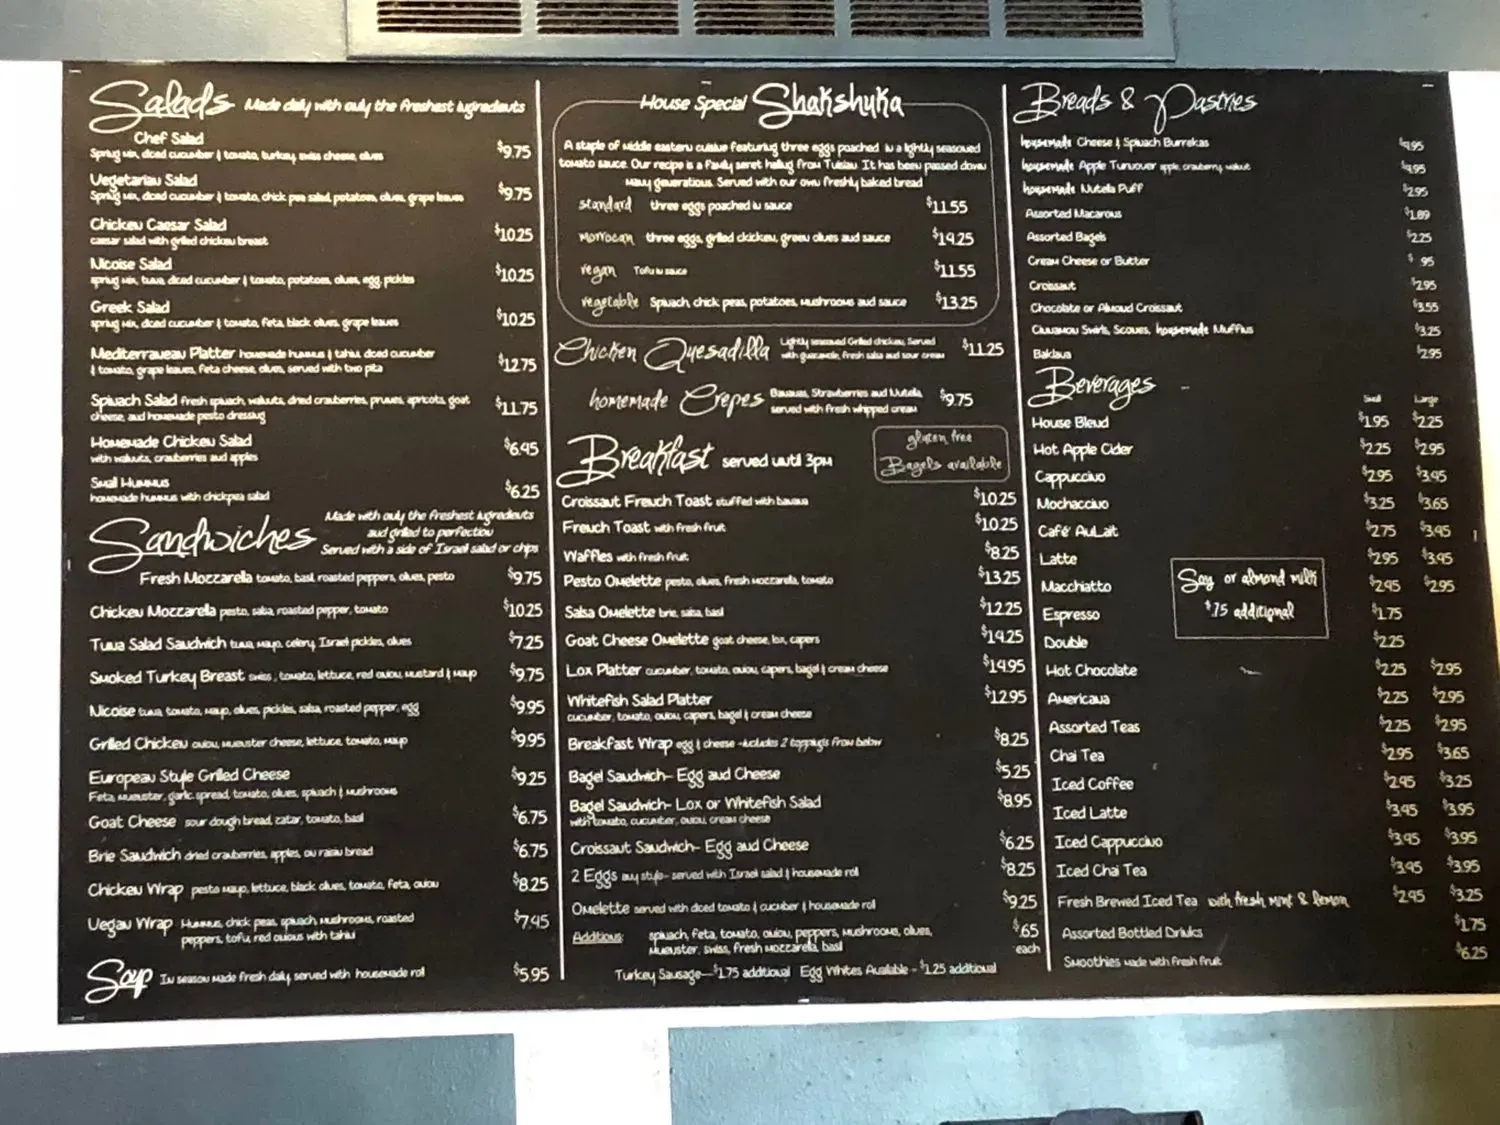 Salads Made daily with only the freshest ingredients
Chef Salad
Spring mix, diced cucumber & tomato, turkey, swiss cheese, olives $9.75
Vegetarian Salad
Spring mix, diced cucumber & tomato, chick pea salad, potatoes, olives, grape leaves $9.75
Chicken Caesar Salad
caesar salad with grilled chicken breast $10.25
Nicoise Salad
spring mix, tuna, diced cucumber & tomato, potatoes, olives, egg, pickles $10.25
Greek Salad
spring mix, diced cucumber & tomato, feta, black olives, grape leaves $10.25
Mediterranean Platter homemade hummus & tahini, diced cucumber
& tomato, grape leaves, feta cheese, olives, served with two pita $12.75
Spinach Salad fresh spinach, walnuts, dried cranberries, prunes, apricots, goat
cheese, and homemade pesto dressing $11.75
Homemade Chicken Salad
with walnuts, cranberries and apples $6.45
Small Hummus
homemade hummus with chickpea salad $6.25
Sandwiches
Made with only the freshest ingredients
and grilled to perfection
Served with a side of Israeli salad or chips
Fresh Mozzarella tomato, basil, roasted peppers, olives, pesto $9.75
Chicken Mozzarella pesto, salsa, roasted pepper, tomato $10.25
Tuna Salad Sandwich tuna, mayo, celery, Israeli pickles, olives $7.25
Smoked Turkey Breast swiss, tomato, lettuce, red onion, mustard & mayo $9.75
Nicoise tuna, tomato, mayo, olives, pickles, salsa, roasted pepper, egg $9.95
Grilled Chicken onion, muenster cheese, lettuce, tomato, mayo $9.95
European Style Grilled Cheese
Feta, muenster, garlic spread, tomato, olives, spinach & mushrooms $9.25
Goat Cheese sour dough bread, zatar, tomato, basil $6.75
Brie Sandwich dried cranberries, apples, on raisin bread $6.75
Chicken Wrap pesto mayo, lettuce, black olives, tomato, feta, onion $8.25
Vegan Wrap Hummus, chick peas, spinach, mushrooms, roasted
peppers, tofu, red onions with tahini $7.45
Soup In season made fresh daily, served with housemade roll $5.95
House Special Shakshuka
A staple of middle eastern cuisine featuring three eggs poached in a lightly seasoned
tomato sauce. Our recipe is a family secret hailing from Tunisia. It has been passed down
many generations. Served with our own freshly baked bread
standard three eggs poached in sauce $11.55
morrocan three eggs, grilled chicken, green olives and sauce $14.25
vegan Tofu in sauce $11.55
vegetable Spinach, chick peas, potatoes, mushrooms and sauce $13.25
Chicken Quesadilla Lightly seasoned Grilled chicken, Served
with guacamole, fresh salsa and sour cream $11.25
homemade Crepes Bananas, Strawberries and Nutella,
served with fresh whipped cream $9.75
Breakfast served until 3pm
gluten free
Bagels available
Croissant French Toast stuffed with banana $10.25
French Toast with fresh fruit $10.25
Waffles with fresh fruit $8.25
Pesto Omelette pesto, olives, fresh mozzarella, tomato $13.25
Salsa Omelette brie, salsa, basil $12.25
Goat Cheese Omelette goat cheese, lox, capers $14.25
Lox Platter cucumber, tomato, onion, capers, bagel & cream cheese $14.95
Whitefish Salad Platter
cucumber, tomato, onion, capers, bagel & cream cheese $12.95
Breakfast Wrap egg & cheese -includes 2 toppings from below $8.25
Bagel Sandwich- Egg and Cheese $5.25
Bagel Sandwich- Lox or Whitefish Salad
with tomato, cucumber, onion, cream cheese $8.95
Croissant Sandwich- Egg and Cheese $6.25
2 Eggs any style- served with Israeli salad & housemade roll $8.25
Omelette served with diced tomato & cucumber & housemade roll $9.25
Additions: spinach, feta, tomato, onion, peppers, mushrooms, olives, $.65
muenster, swiss, fresh mozzarella, basil each
Turkey Sausage—$1.75 additional Egg Whites Available - $1.25 additional
Breads & Pastries
housemade Cheese & Spinach Burrekas $4.95
housemade Apple Turnover apple, cranberry, walnut $4.95
housemade Nutella Puff $2.95
Assorted Macarons $1.89
Assorted Bagels $2.25
Cream Cheese or Butter $.95
Croissant $2.95
Chocolate or Almond Croissant $3.55
Cinnamon Swirls, Scones, housemade Muffins $3.25
Baklava $2.95
Beverages
Small Large
House Blend $1.95 $2.25
Hot Apple Cider $2.25 $2.95
Cappuccino $2.95 $3.45
Mochaccino $3.25 $3.65
Café AuLait $2.75 $3.45
Latte $2.95 $3.45
Macchiatto $2.45 $2.95
Espresso $1.75
Double $2.25
Soy or almond milk
$.75 additional
Hot Chocolate $2.25 $2.95
Americana $2.25 $2.95
Assorted Teas $2.25 $2.95
Chai Tea $2.95 $3.65
Iced Coffee $2.45 $3.25
Iced Latte $3.45 $3.95
Iced Cappuccino $3.45 $3.95
Iced Chai Tea $3.45 $3.95
Fresh Brewed Iced Tea with fresh mint & lemon $2.45 $3.25
Assorted Bottled Drinks $1.75
Smoothies made with fresh fruit $6.25